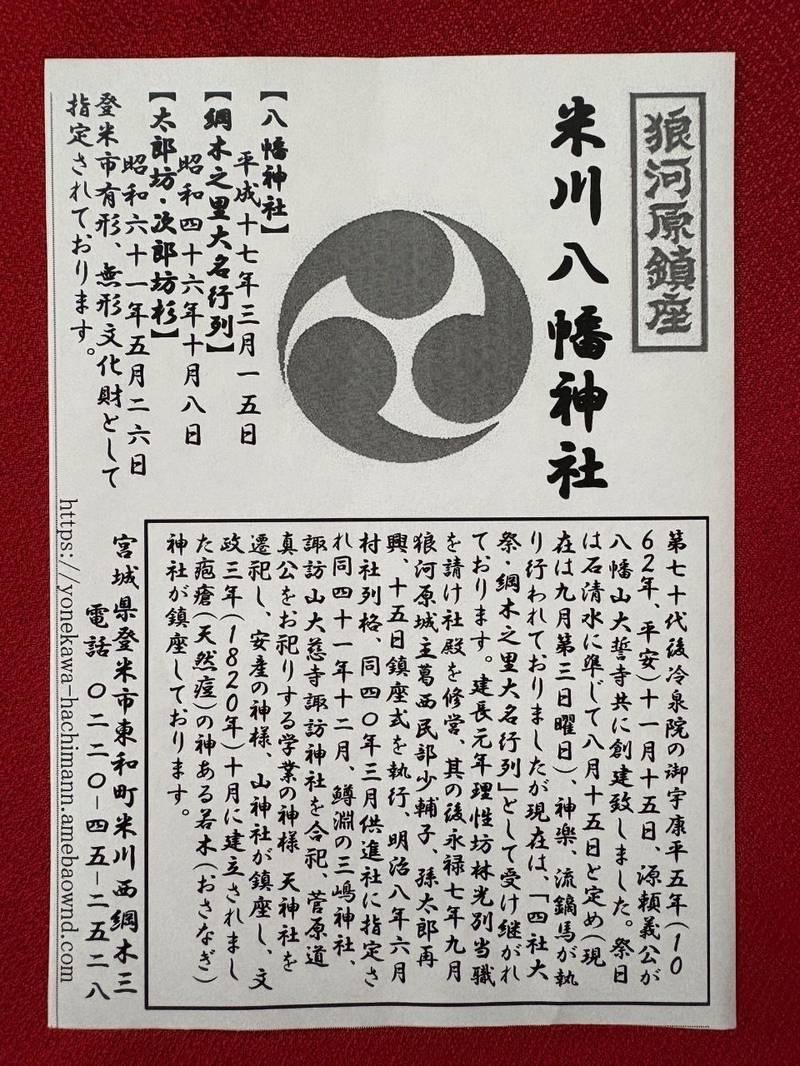 狼河原鎮座
米川八幡神社
【八幡神社】
平成十七年三月一五日
【綱木之里大名行列】
昭和四十六年十月八日
【太郎坊・次郎坊杉】
昭和六十一年五月二六日
登米市有形、無形文化財として
指定されております。
第七十代後冷泉院の御宇康平五年(10
62年、平安)十一月十五日、源頼義公が
八幡山大誓寺共に創建致しました。祭日
は石清水に準じて八月十五日と定め(現
在は九月第三日曜日)神楽、流鏑馬が執
り行われておりましたが現在は、「四社大
祭・綱木之里大名行列」として受け継がれ
ております。建長元年理性坊林光別当職
を請け社殿を修営、其の後永禄七年九月
狼河原城主葛西民部少輔子、孫太郎再
興、十五日鎮座式を執行、明治八年六月
村社列格、同四〇年三月供進社に指定さ
れ同四十一年十二月、鱒淵の三嶋神社、
諏訪山大慈寺諏訪神社を合祀、菅原道
真公をお祀りする学業の神様 天神社を
遷祀し、安産の神様、山神社が鎮座し、文
政三年(1820年)十月に建立されまし
た疱瘡(天然痘)の神ある若木(おさなぎ)
神社が鎮座しております。
宮城県登米市東和町米川西綱木三
電話 〇二二〇-四五-二五二八
https://yonekawa-hachimann.amebaownd.com